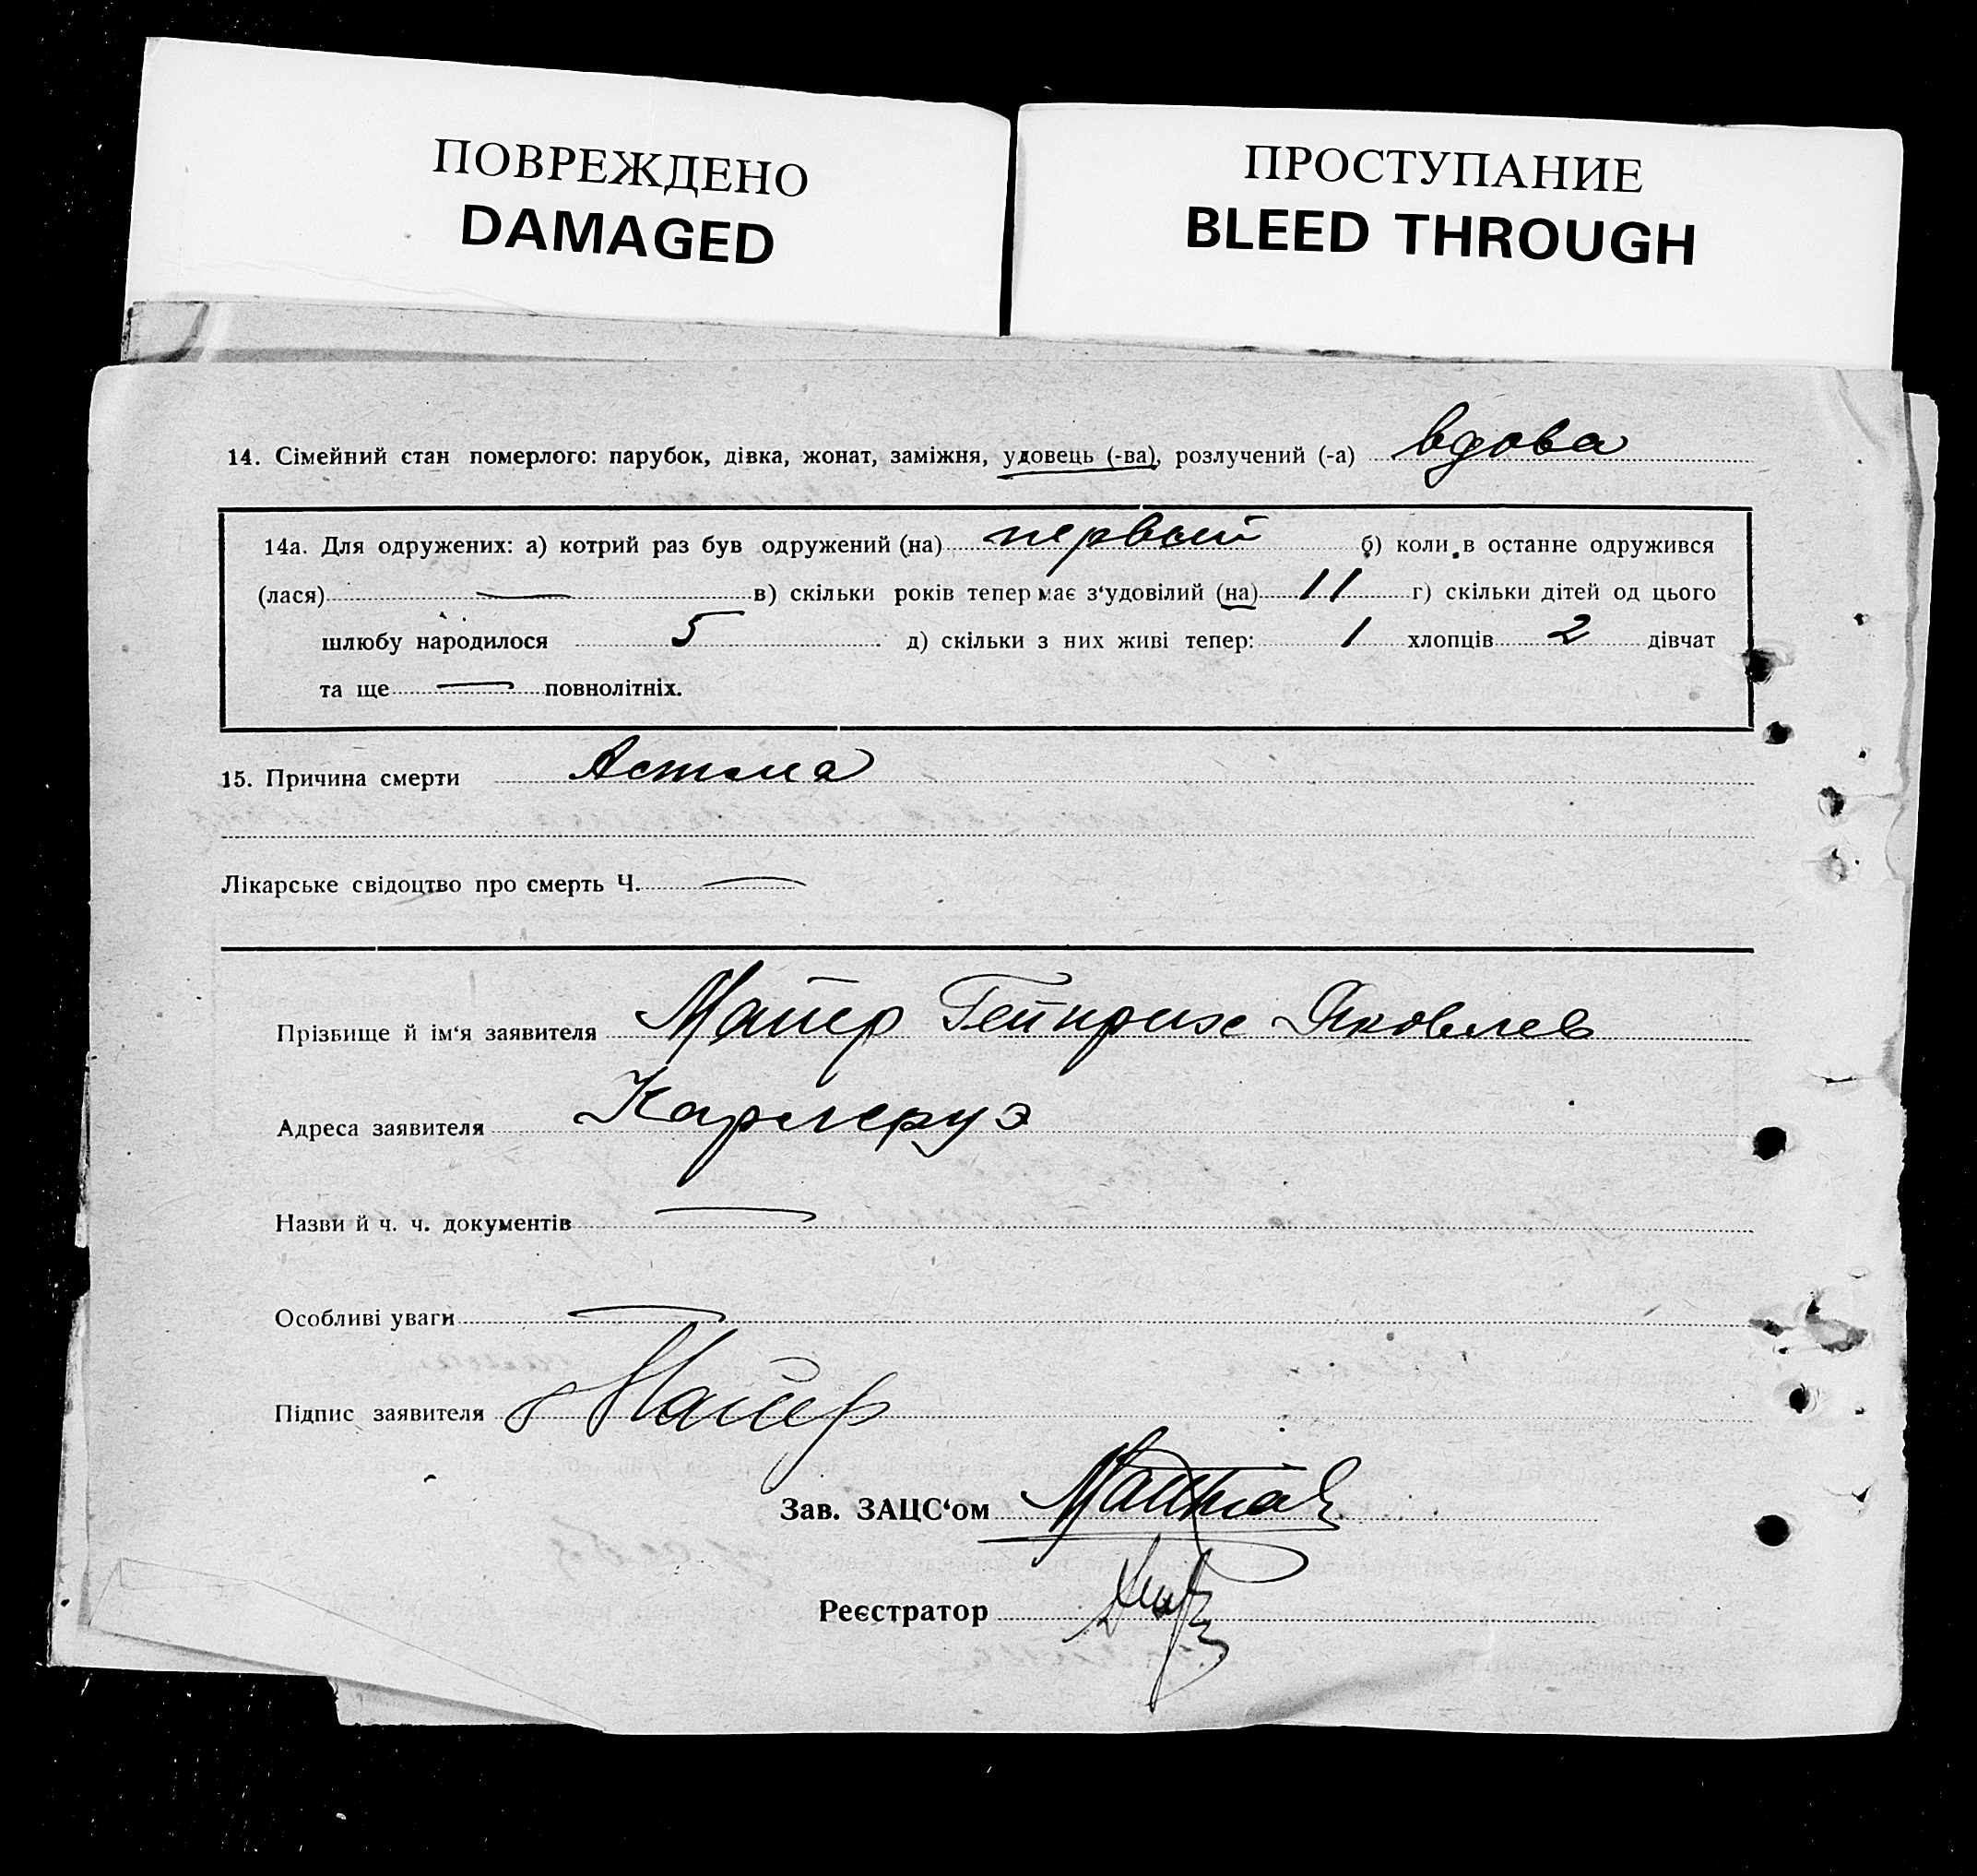 ПОВРЕЖДЕНО
DAMAGED
ПРОСТУПАНИЕ
BLEED THROUGH
14. Сімейний стан померлого: парубок, дівка, жонат, заміжня, удовець (-ва), розлучений (-а) вдова
14а. Для одружених: а) котрий раз був одружений (на) первый б) коли в останне одружився
(лася) — в) скільки років тепер має з‘удовілий (на) 11 г) скільки дітей од цього
шлюбу народилося 5 д) скільки з них живі тепер: 1 хлопців 2 дівчат
та ще — повнолітніх.
15. Причина смерти Астма
Лікарське свідоцтво про смерть Ч. —
Прізвище й ім‘я заявителя Майер Гейнрих Яковлев
Адреса заявителя Карлсруэ
Назви й ч. ч. документів —
Особливі уваги —
Підпис заявителя Майер
Зав. ЗАЦС‘ом
Реєстратор